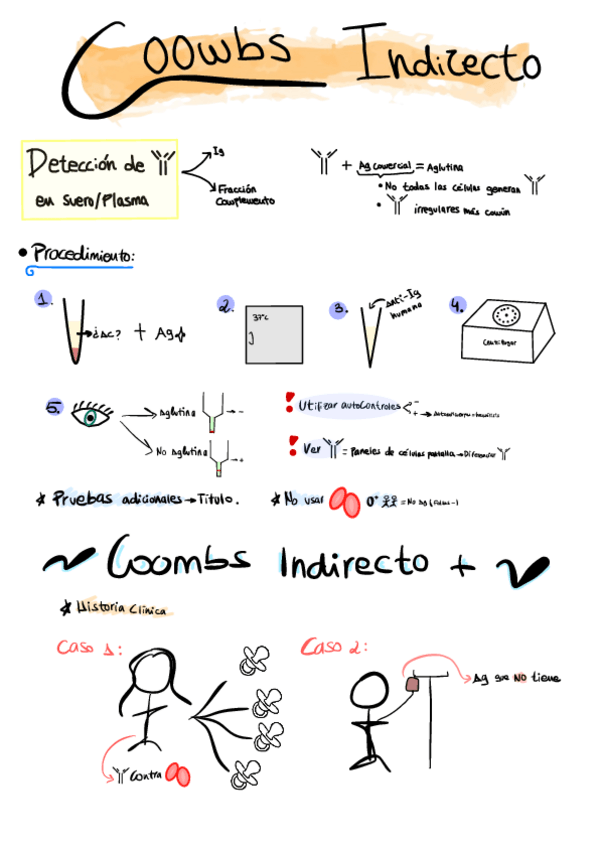 Coombs Indirecto
Detección de
en suero/Plasma
Ig
Fracción
Complemento
+ Ag comercial = Aglutina
• No todas las células generan
• irregulares más común
• Procedimiento:
1.
¿Ac? + Ag
2.
37°C
3.
Anti-Ig
humano
4.
Centrifugar
5.
Aglutina
-
No Aglutina
+
! Utilizar autocontroles
-
+
! Ver = Paneles de células pantalla → Diferenciar
* Pruebas adicionales → Título.
* No usar O+ = No Ag (Falso -)
Coombs Indirecto +
* Historia Clínica
Caso 1:
Contra
Caso 2:
Ag que NO tiene